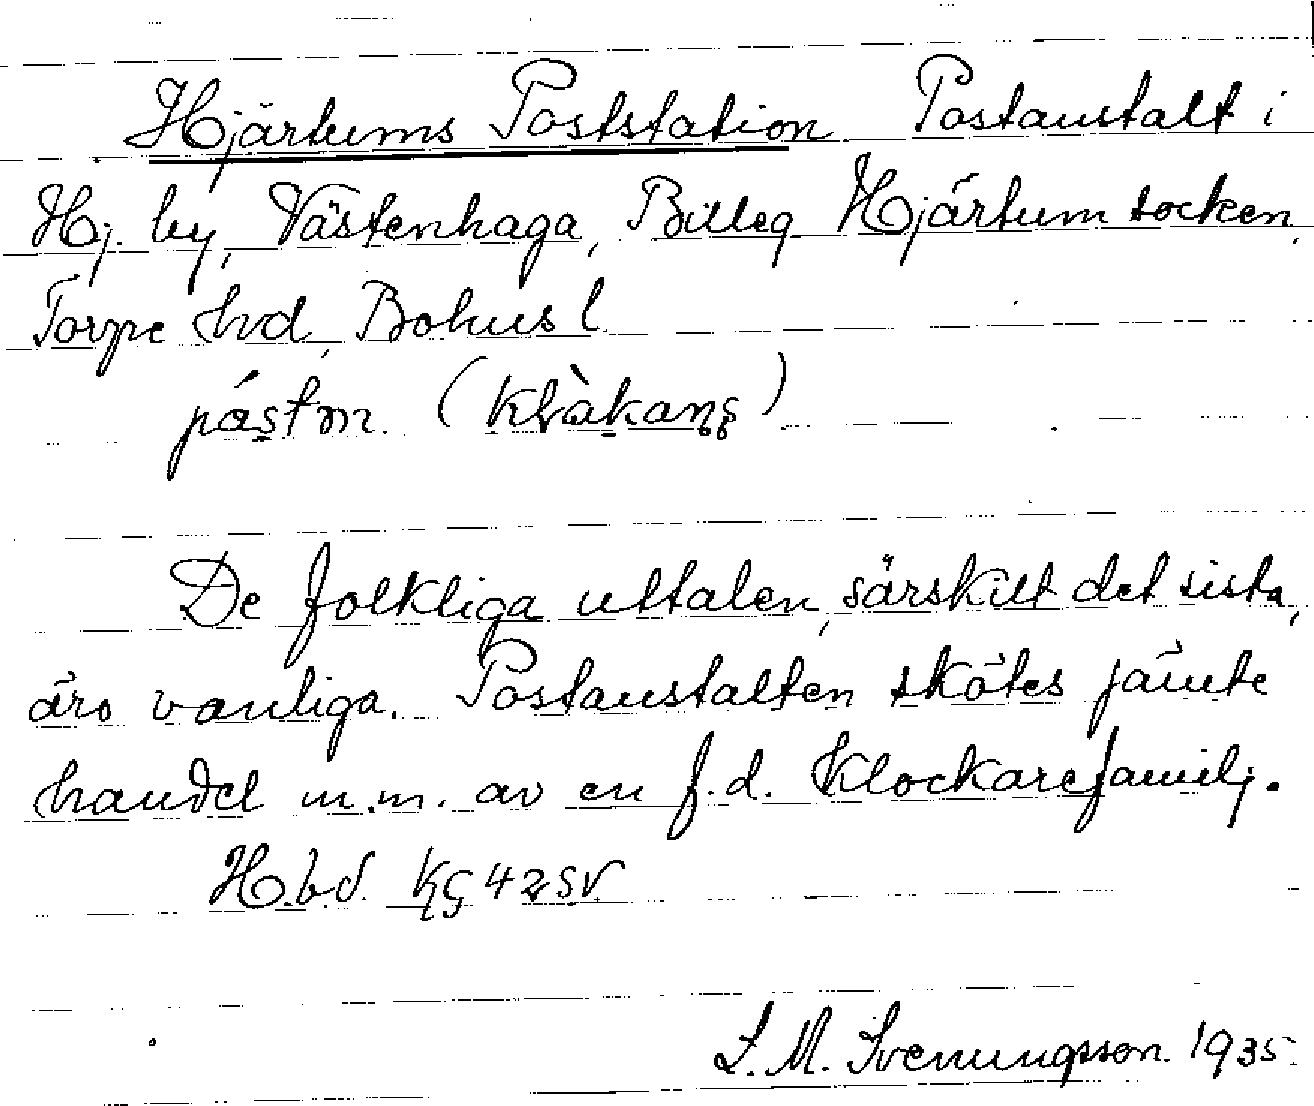 Hjärtums Poststation Postanstalt i
Hj. by, Västenhaga, Billeg Hjärtum socken,
Torpe hvd, Bohusl
påstm. (Klåkans)
De folkliga uttalen, särskilt det sista,
äro vanliga. Postanstalten skötes jämte
handel m.m. av en f.d. klockarefamilj.
H.bd. KG 42 SV
S. M. Svenungsson. 1935